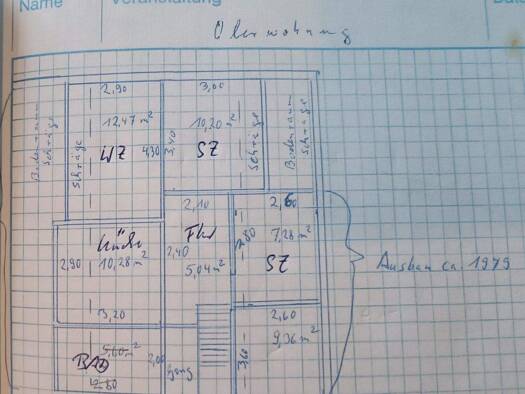 Name
Veranstaltung
Oberwohnung
2,90
3,00
12,47 m²
10,20 m²
WZ
4,30
3,40
SZ
Schräge
Schräge
Bodenraum
Schräge
Bodenraum
Schräge
2,10
2,60
Küche
Flur
2,80
7,28 m²
2,90
10,28 m²
2,40
5,04 m²
SZ
Ausbau ca. 1979
3,20
2,60
9,36 m²
5,60 m²
BAD
2,00
2,80
3,60